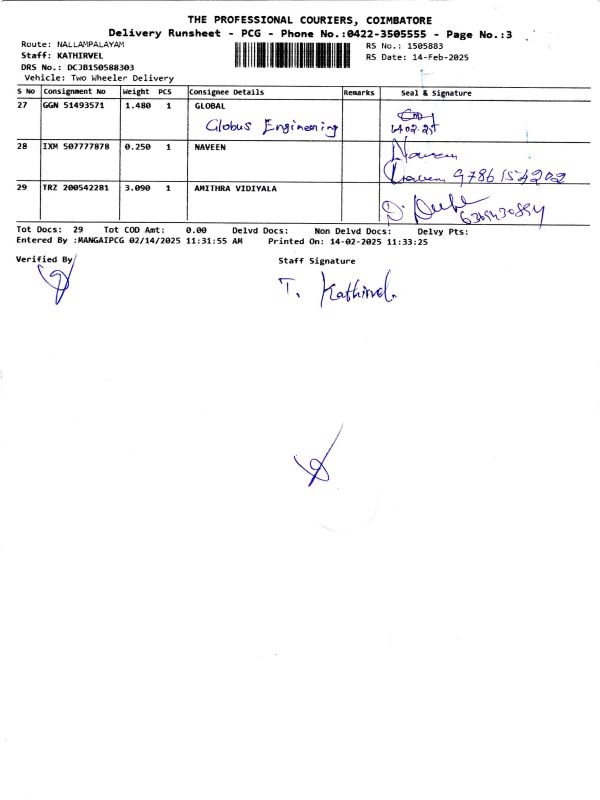 THE PROFESSIONAL COURIERS, COIMBATORE
Delivery Runsheet - PCG - Phone No.:0422-3505555 - Page No.:3
Route: NALLAMPALAYAM
RS No.: 1505883
Staff: KATHIRVEL
RS Date: 14-Feb-2025
DRS No.: DCJB150588303
Vehicle: Two Wheeler Delivery
S No Consignment No Weight PCS Consignee Details Remarks Seal & Signature
27 GGN 51493571 1.480 1 GLOBAL
Globus Engineering
14.02.25
28 IXM 507777878 0.250 1 NAVEEN
Naveen
Naveen 9786154202
29 TRZ 200542281 3.090 1 AMITHRA VIDIYALA
Tot Docs: 29 Tot COD Amt: 0.00 Delvd Docs: Non Delvd Docs: Delvy Pts:
Entered By :MANGAIPCG 02/14/2025 11:31:55 AM Printed On: 14-02-2025 11:33:25
Verified By
Staff Signature
T. Kathirvel.